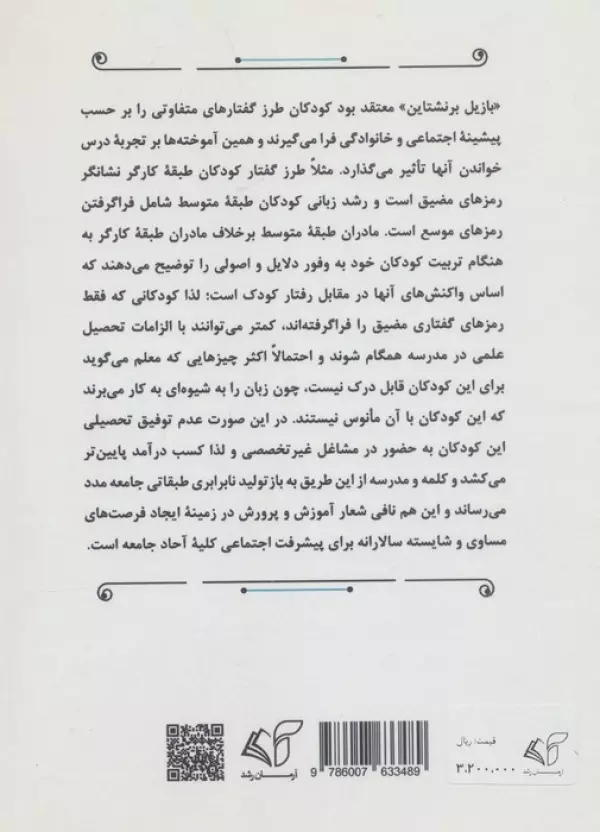 «بازیل برنشتاین» معتقد بود کودکان طرز گفتارهای متفاوتی را بر حسب
پیشینهٔ اجتماعی و خانوادگی فرا می‌گیرند و همین آموخته‌ها بر تجربهٔ درس
خواندن آنها تأثیر می‌گذارد. مثلاً طرز گفتار کودکان طبقهٔ کارگر نشانگر
رمزهای مضیق است و رشد زبانی کودکان طبقهٔ متوسط شامل فراگرفتن
رمزهای موسع است. مادران طبقهٔ متوسط برخلاف مادران طبقهٔ کارگر به
هنگام تربیت کودکان خود به وفور دلایل و اصولی را توضیح می‌دهند که
اساس واکنش‌های آنها در مقابل رفتار کودک است؛ لذا کودکانی که فقط
رمزهای گفتاری مضیق را فراگرفته‌اند، کمتر می‌توانند با الزامات تحصیل
علمی در مدرسه همگام شوند و احتمالاً اکثر چیزهایی که معلم می‌گوید
برای این کودکان قابل درک نیست، چون زبان را به شیوه‌ای به کار می‌برند
که این کودکان با آن مأنوس نیستند. در این صورت عدم توفیق تحصیلی
این کودکان به حضور در مشاغل غیرتخصصی و لذا کسب درآمد پایین‌تر
می‌کشد و کلمه و مدرسه از این طریق به بازتولید نابرابری طبقاتی جامعه مدد
می‌رساند و این هم نافی شعار آموزش و پرورش در زمینهٔ ایجاد فرصت‌های
مساوی و شایسته سالارانه برای پیشرفت اجتماعی کلیهٔ آحاد جامعه است.
آرمان رشد
9 786007 633489
قیمت: ریال
۳،۲۰۰،۰۰۰
آرمان رشد